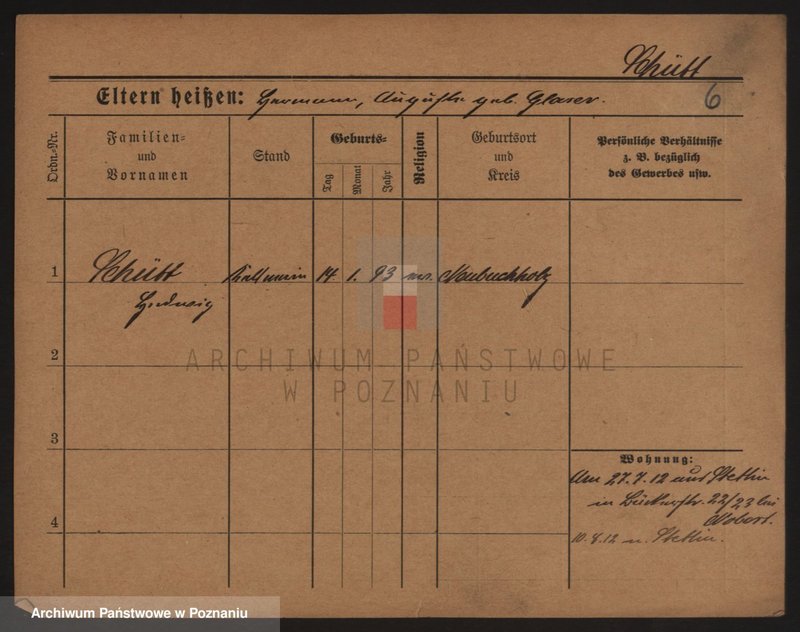 Schütt
6
Eltern heißen: Hermann, Auguste geb. Glaser.
Ordn.-Nr.
Familien-
und
Vornamen
Stand
Geburts-
Tag
Monat
Jahr
Religion
Geburtsort
und
Kreis
Persönliche Verhältnisse
z. B. bezüglich
des Gewerbes usw.
1 Schütt 14 1. 93 Neubuchholz
Hedwig
ARCHIWUM PAŃSTWOWE
W POZNANIU
2
3
4
Wohnung:
Am 27.7.12 aus Stettin
in 22/23 bei
10.8.12 n. Stettin.
Archiwum Państwowe w Poznaniu